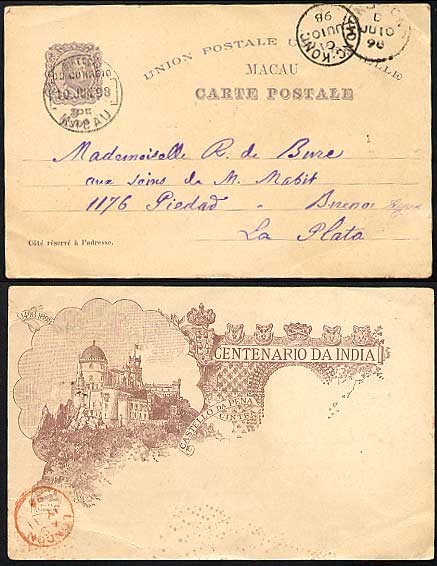 UNION POSTALE
MACAU
CARTE POSTALE
MACAU
G.KONG
JU 10
98
Mademoiselle R. de Bure
aux soins de M. Mabit
1176 Piedad - Buenos
La Plata
Côté réservé à l'adresse.
1498 1898
CENTENARIO DA INDIA
CASTELLO DA PENA
CINTRA
LONDON